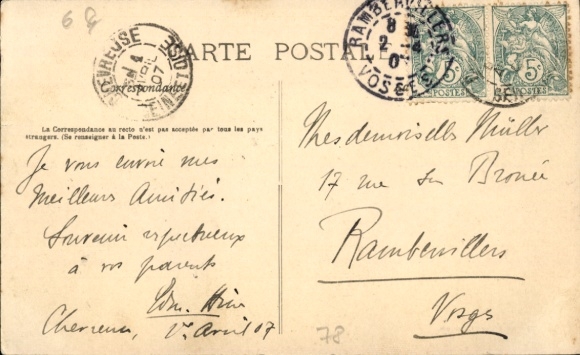 6
CARTE POSTALE
Correspondance
CHEVREUSE
SEINE-ET-OISE
AVRIL
07
RAMBERVILLERS
8
2 - 4
07
VOSGES
5c
POSTES
5c
POSTES
La Correspondance au recto n'est pas acceptée par tous les pays
étrangers. (Se renseigner à la Poste.)
Je vous envoie mes
meilleurs Amitiés.
Souvenir respectueux
à vos parents
Chevreuse, 1er Avril 07
Mesdemoiselles Müller
17 rue
Rambervillers
Vosges
78